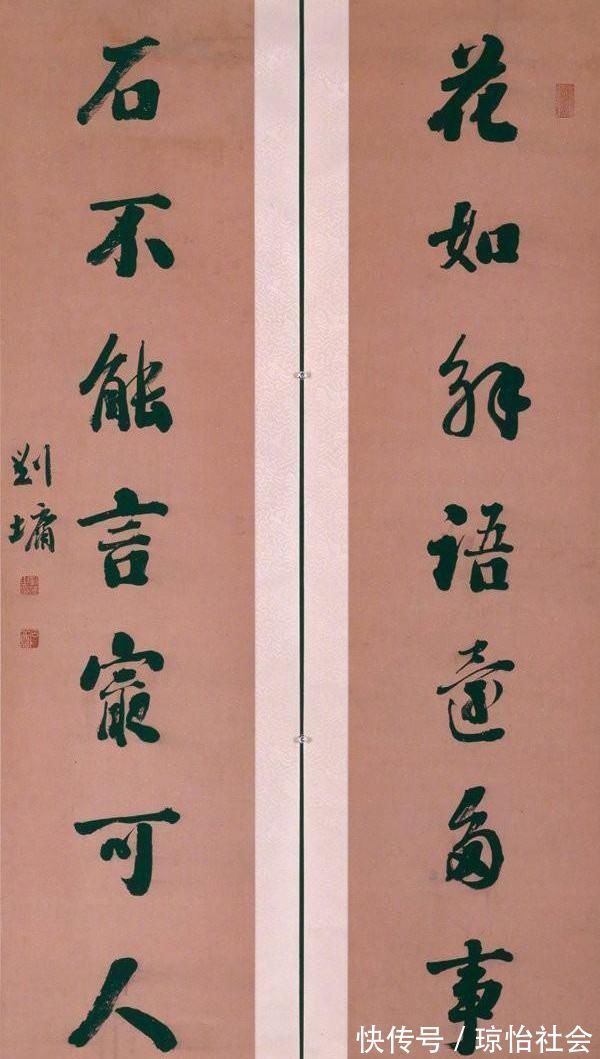 花如解语还多事
石不能言㝡可人
刘墉
快传号 / 琼怡社会